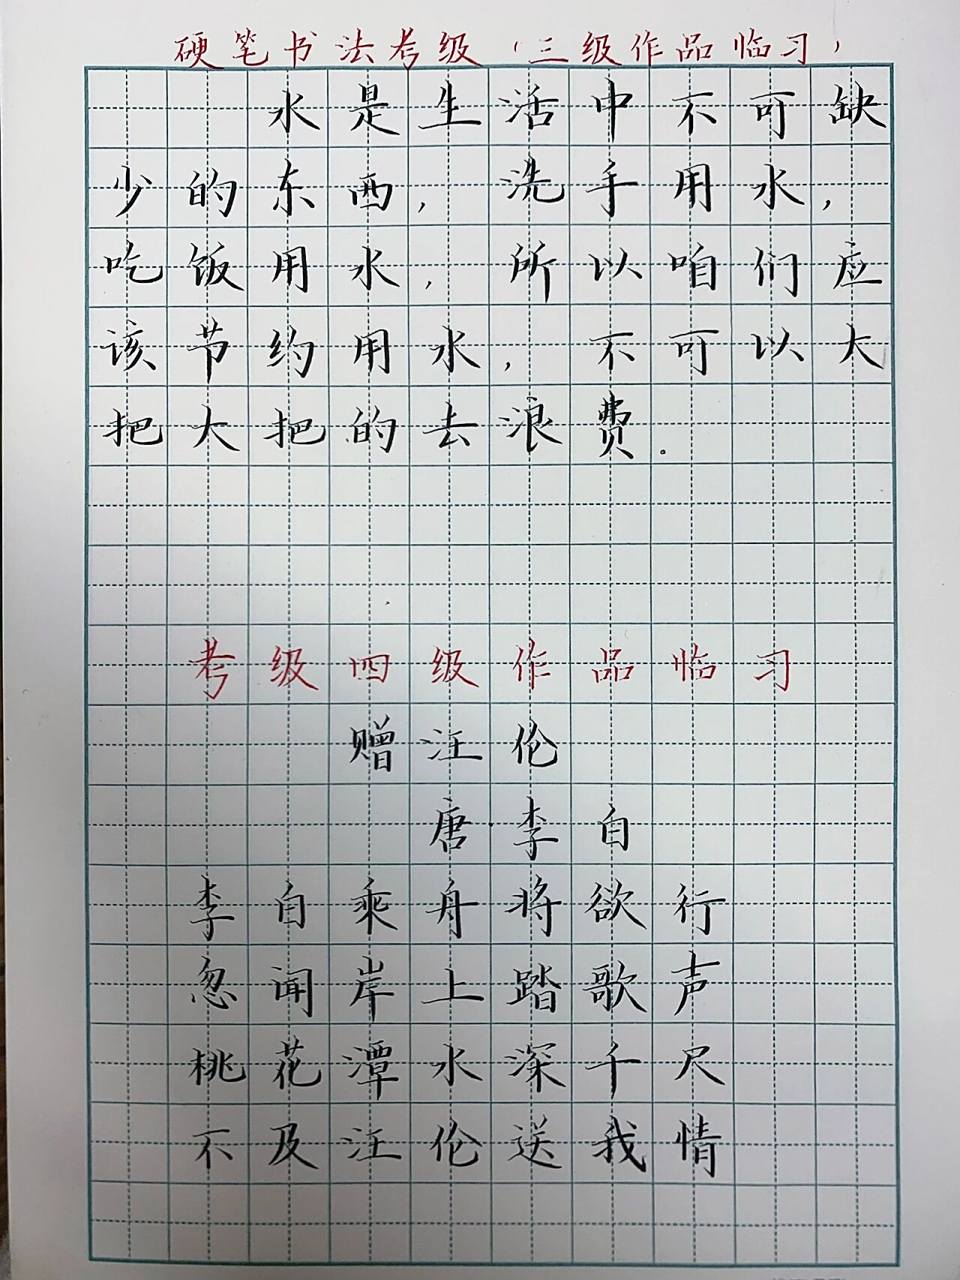 硬笔书法考级（三级作品临习）
水是生活中不可缺
少的东西，洗手用水，
吃饭用水，所以咱们应
该节约用水，不可以大
把大把的去浪费。
考级四级作品临习
赠汪伦
唐·李白
李白乘舟将欲行
忽闻岸上踏歌声
桃花潭水深千尺
不及汪伦送我情